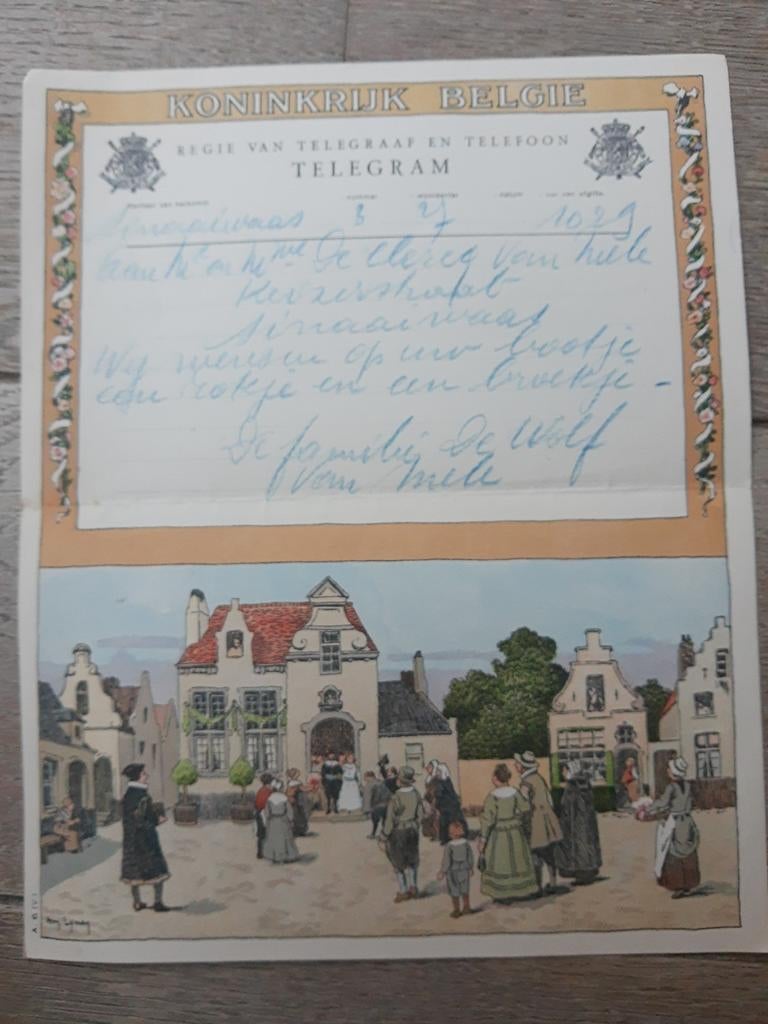 KONINKRIJK BELGIE
REGIE VAN TELEGRAAF EN TELEFOON
TELEGRAM
nummer woordental datum uur van afgifte
Sinaaiwaas 3 27 1029
Aan Mr en Mme De Clercq Van Mele
Keizerstraat
Sinaaiwaas
Wij wensen op uw bootje
een rokje en een broekje -
De familie De Wolf
Van Mele
A. 6 (V)